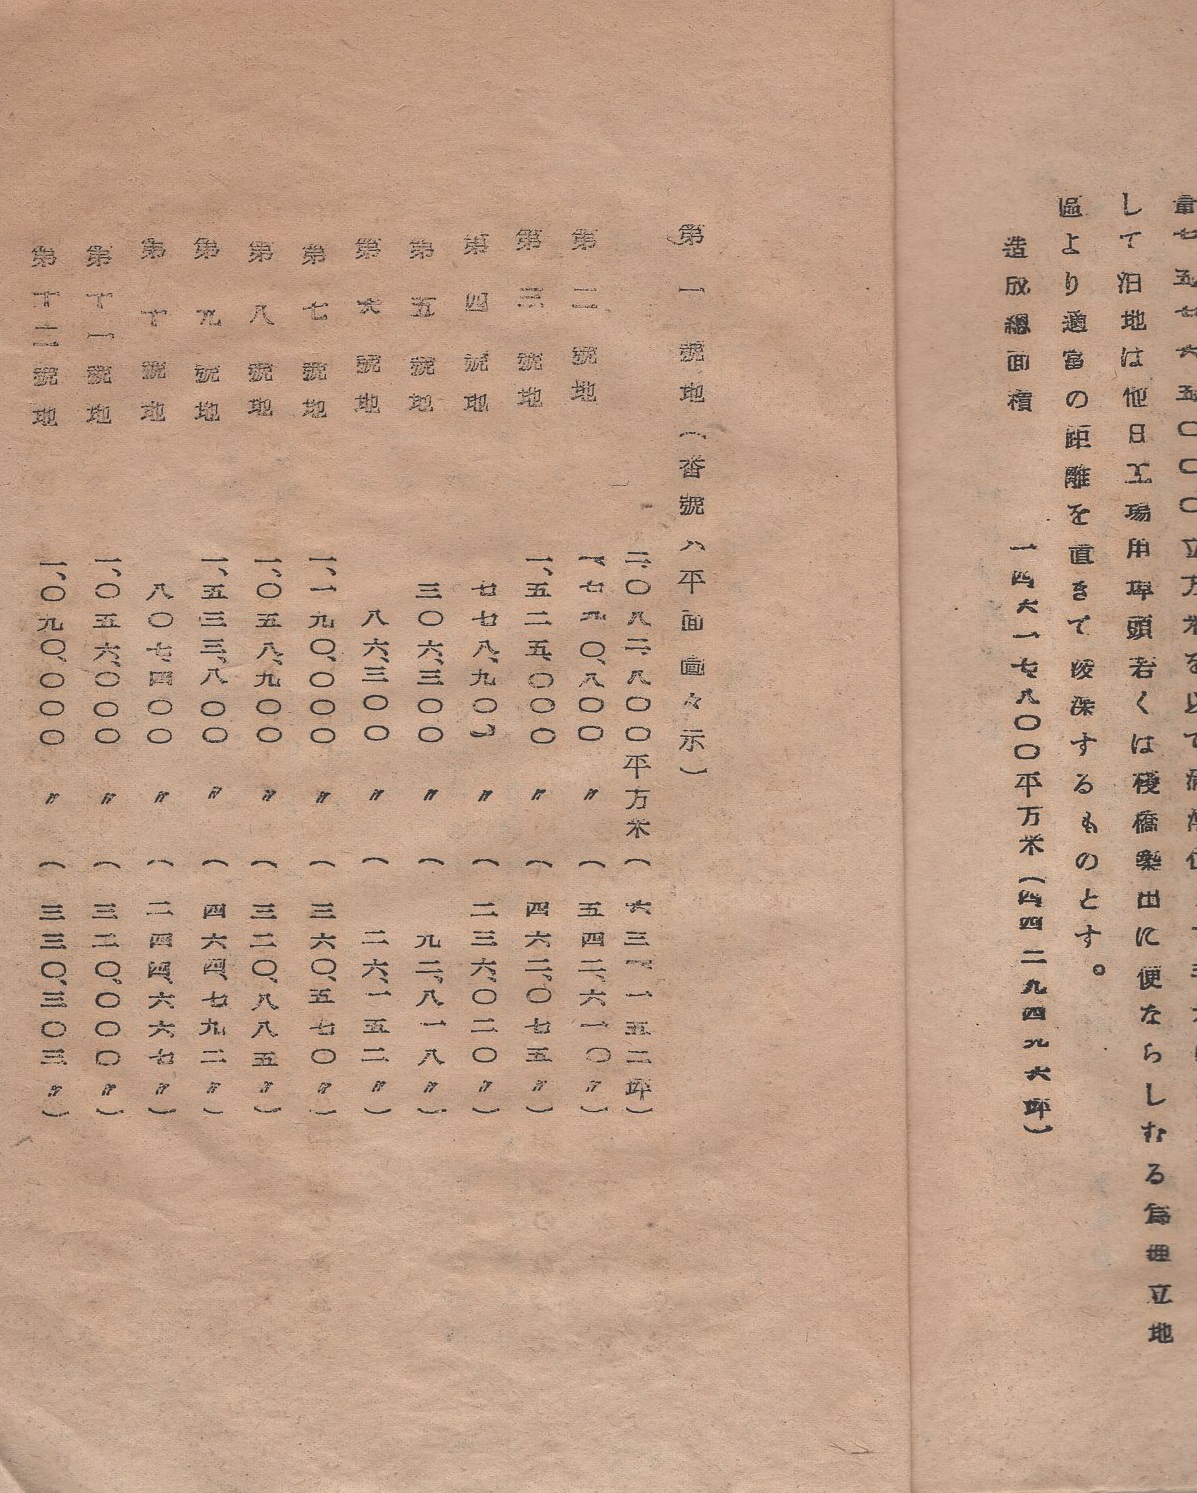 量七五七六五〇〇〇立方米を以て
して泊地は他日工場用埠頭若くは棧橋築出に便ならしむる為埋立地
區より適當の距離を置きて浚渫するものとす。
造成總面積 一四六一七八〇〇平方米(四四二九四九六坪)
第一號地(番號ハ平面圖ニ示ス)
二、〇八二、八〇〇平方米(六三〇、一五二坪)
第二號地 一、七九〇、八〇〇〃(五四二、六一〇〃)
第三號地 一、五二五、〇〇〇〃(四六二、〇七五〃)
第四號地 七七八、九〇〇〃(二三六、〇二〇〃)
第五號地 三〇六、三〇〇〃(九二、八一八〃)
第六號地 八六、三〇〇〃(二六、一五二〃)
第七號地 一、一九〇、〇〇〇〃(三六〇、五七〇〃)
第八號地 一、〇五八、九〇〇〃(三二〇、八八五〃)
第九號地 一、五三三、八〇〇〃(四六四、七九二〃)
第十號地 八〇七、四〇〇〃(二四四、六六七〃)
第十一號地 一、〇五六、〇〇〇〃(三二〇、〇〇〇〃)
第十二號地 一、〇九〇、〇〇〇〃(三三〇、三〇三〃)